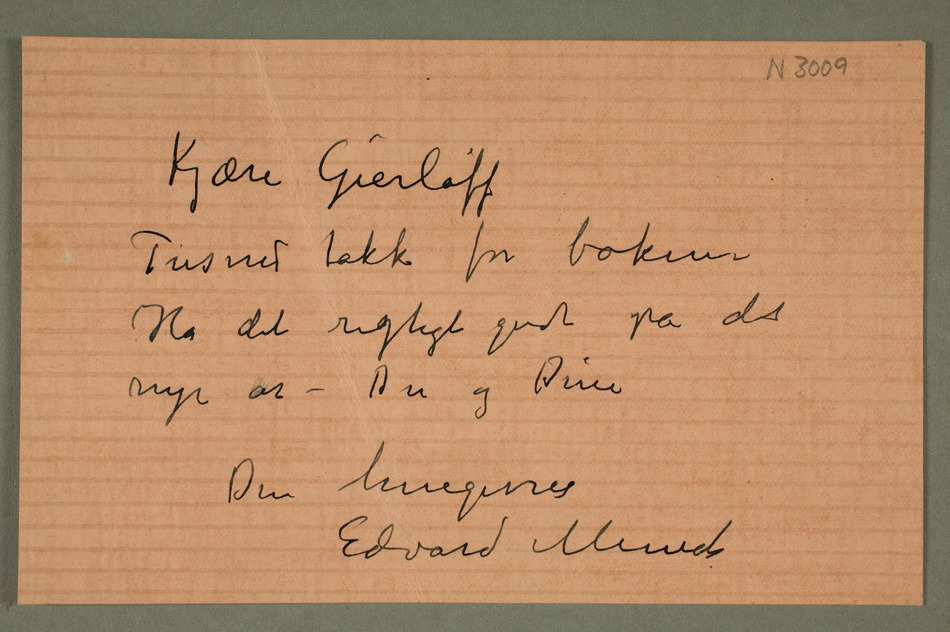 N 3009
Kjære Gierløff
Tusned takk for boken
Ha det rigtigt godt på det
nye år – Du og Dine
Din hengivnes
Edvard Munch